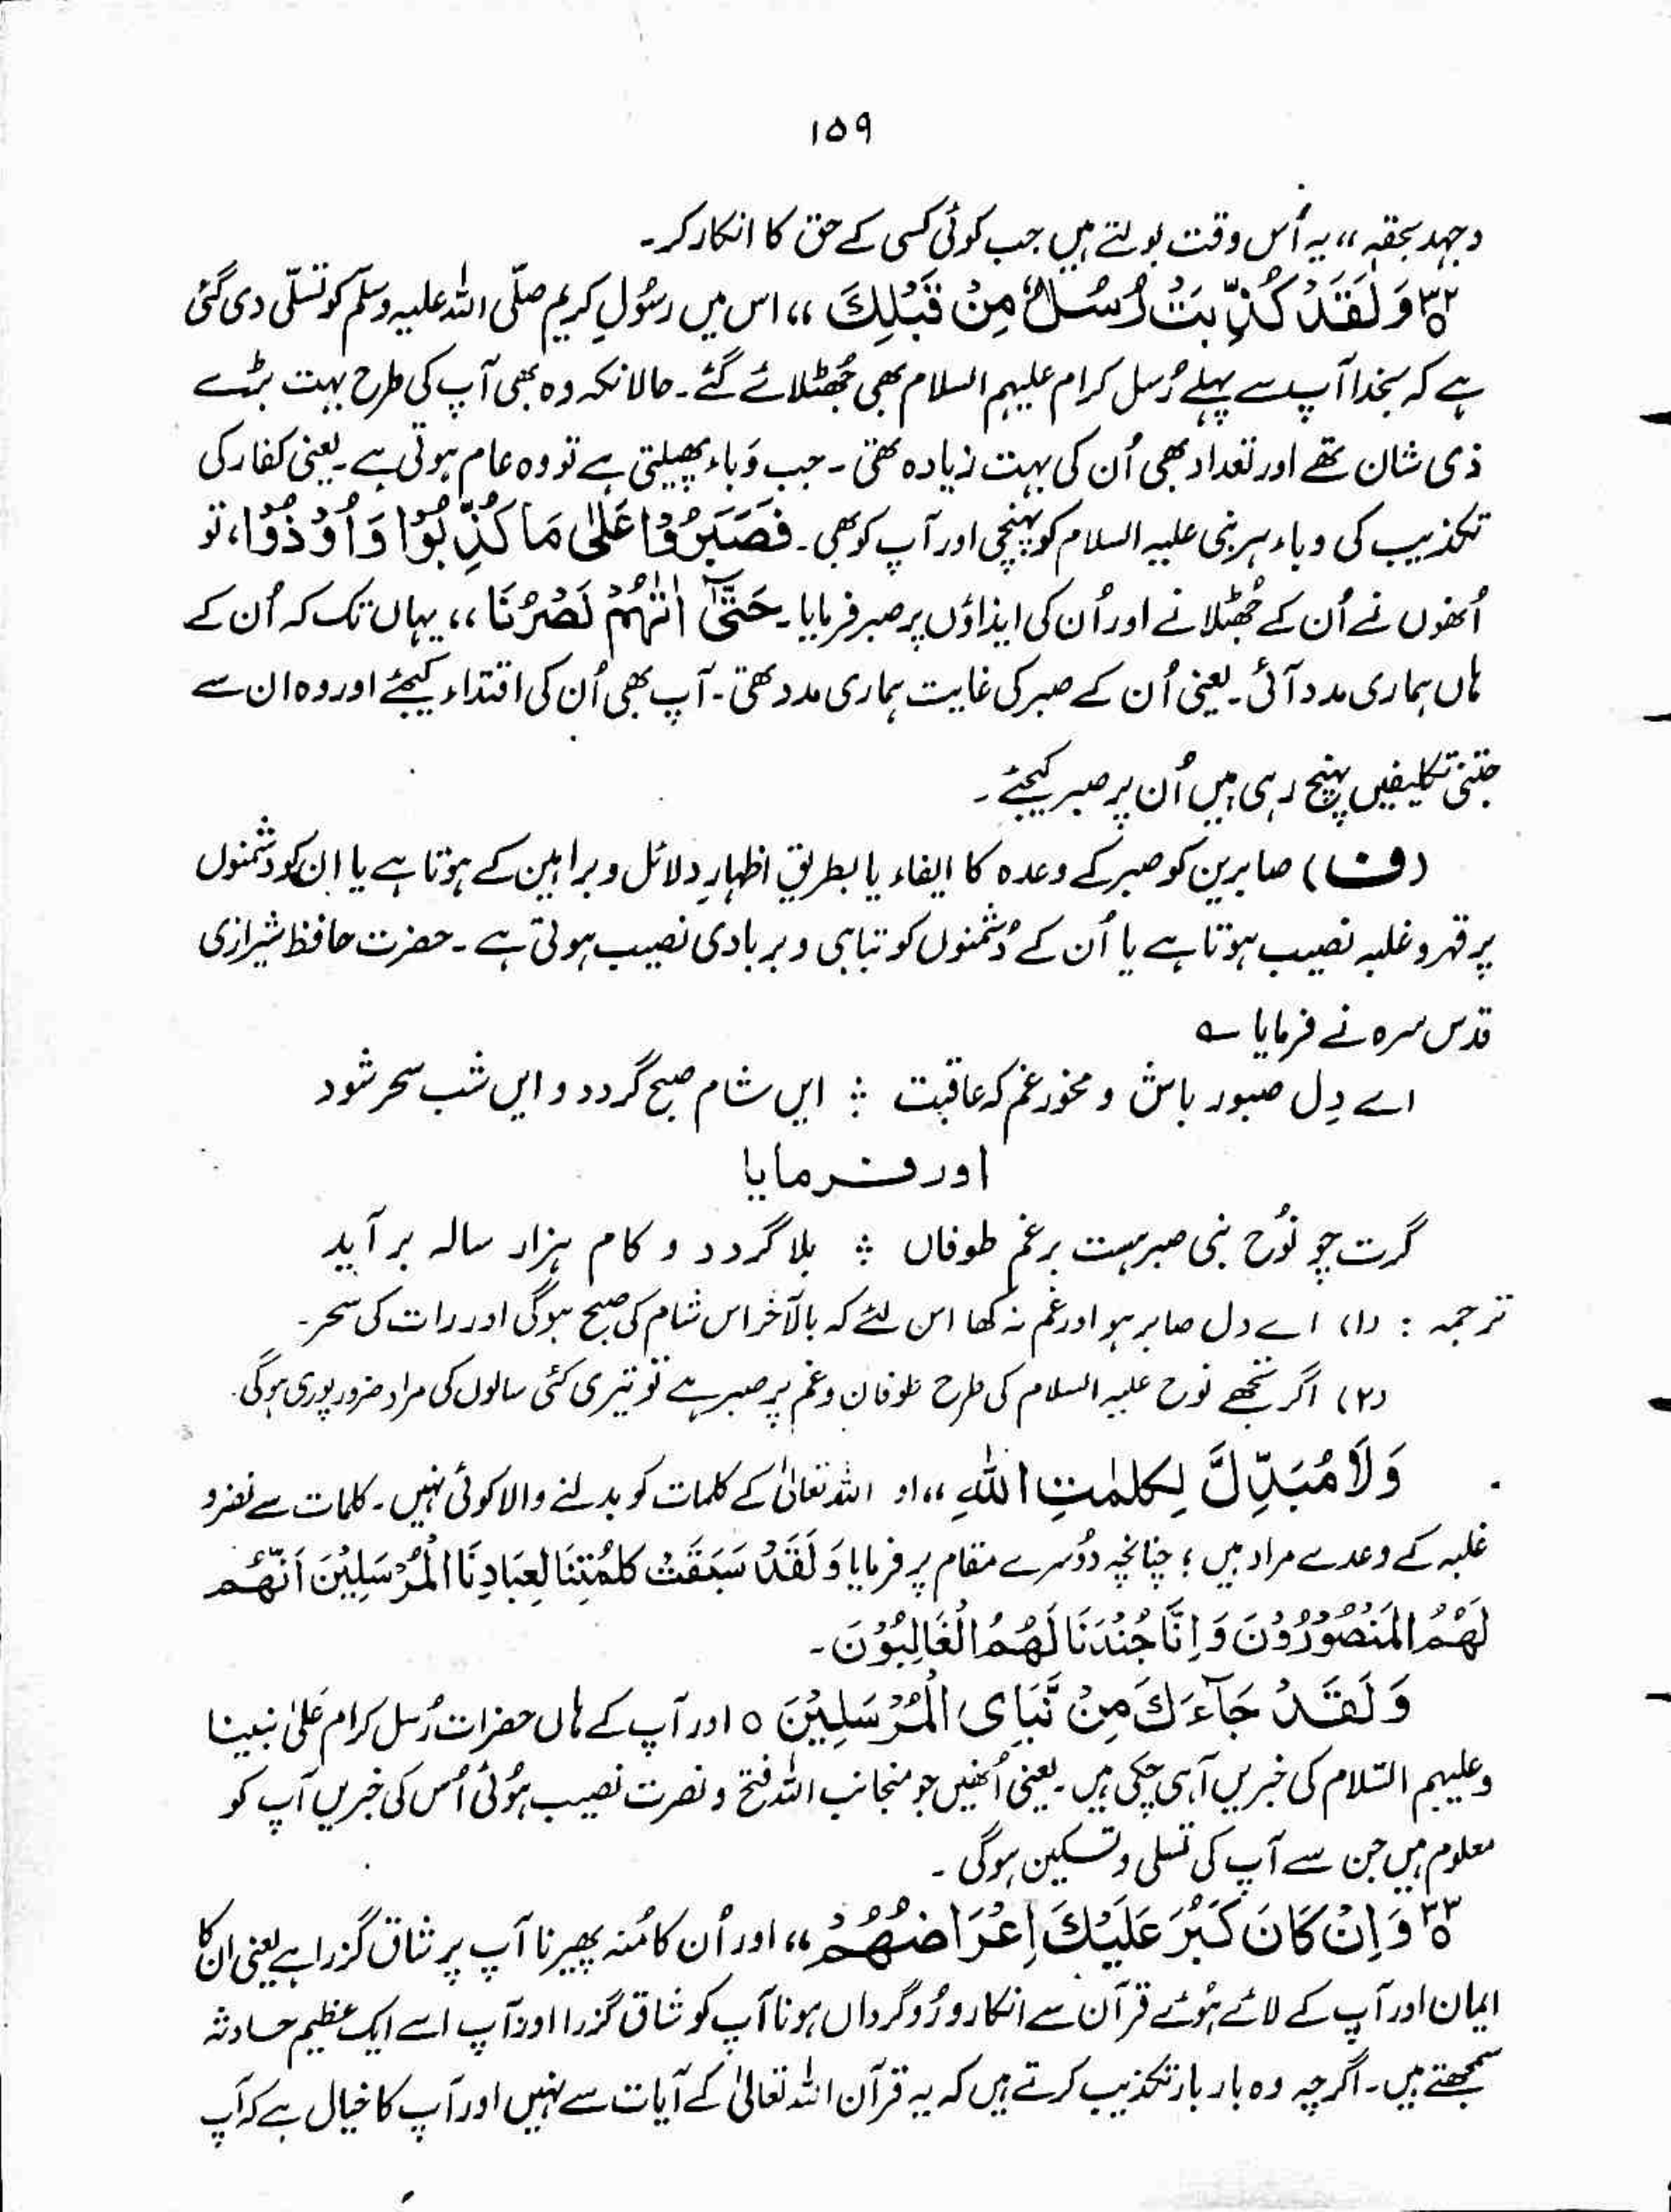 ۱۵۹
وجہد بحقہٖ،، یہ اُس وقت بولتے ہیں جب کوئی کسی کے حق کا انکار کر۔
۳۴ وَلَقَدْ كُذِّبَتْ رُسُلٌ مِنْ قَبْلِكَ ،، اس میں رسُولِ کریم صلّی اللہ علیہ وسلّم کو تسلّی دی گئی
ہے کہ بخدا آپ سے پہلے رُسل کرام علیہم السلام بھی جُھٹلائے گئے۔ حالانکہ وہ بھی آپ کی طرح بہت بڑے
ذی شان تھے اور تعداد بھی اُن کی بہت زیادہ تھی۔ جب وَباء پھیلتی ہے تو وہ عام ہوتی ہے۔ یعنی کفار کی
تکذیب کی وباء ہر نبی علیہ السلام کو پہنچی اور آپ کو بھی۔ فَصَبَرُوْا عَلٰى مَا كُذِّبُوْا وَاُوْذُوْا، تو
اُنھوں نے اُن کے جُھٹلانے اور اُن کی ایذاؤں پر صبر فرمایا۔ حَتّٰٓى اَتٰهُمْ نَصْرُنَا ،، یہاں تک کہ اُن کے
ہاں ہماری مدد آئی۔ یعنی اُن کے صبر کی غایت ہماری مدد تھی۔ آپ بھی اُن کی اقتداء کیجئے اور وہ ان سے
جتنی تکلیفیں پہنچ رہی ہیں اُن پر صبر کیجئے۔
(ف) صابرین کو صبر کے وعدہ کا ایفاء یا بطریق اظہارِ دلائل و براہین کے ہوتا ہے یا ان کو دشمنوں
پر قہر و غلبہ نصیب ہوتا ہے یا اُن کے دُشمنوں کو تباہی و بربادی نصیب ہوتی ہے۔ حضرت حافظ شیرازی
قدس سرہ نے فرمایا ؎
اے دِل صبور باش و مخور غم کہ عاقبت ؛ ایں شام صبح گردد و ایں شب سحر شود
اور فرمایا
گرت چو نُوح نبی صبر ہست بر غم طوفاں ؛ بلا گردد و کام ہزار سالہ بر آید
ترجمہ : (۱) اے دل صابر ہو اور غم نہ کھا اس لئے کہ بالآخر اس شام کی صبح ہوگی اور رات کی سحر۔
(۲) اگر تجھے نوح علیہ السلام کی طرح طوفان و غم پر صبر ہے تو تیری کئی سالوں کی مراد ضرور پوری ہوگی۔
وَلَا مُبَدِّلَ لِكَلِمٰتِ اللّٰهِ ،، او اللہ تعالیٰ کے کلمات کو بدلنے والا کوئی نہیں۔ کلمات سے نصر و
غلبہ کے وعدے مراد ہیں ؛ چنانچہ دُوسرے مقام پر فرمایا وَلَقَدْ سَبَقَتْ كَلِمَتُنَا لِعِبَادِنَا الْمُرْسَلِيْنَ اَنَّهُمْ
لَهُمُ الْمَنْصُوْرُوْنَ وَاِنَّا جُنْدَنَا لَهُمُ الْغَالِبُوْنَ۔
وَلَقَدْ جَآءَكَ مِنْ نَّبَاىِٔ الْمُرْسَلِيْنَ ○ اور آپ کے ہاں حضرات رُسل کرام عَلیٰ نبینا
وعلیہم السّلام کی خبریں آہی چکی ہیں۔ یعنی اُنھیں جو منجانب اللہ فتح و نصرت نصیب ہُوئی اُس کی خبریں آپ کو
معلوم ہیں جن سے آپ کی تسلی و تسکین ہوگی۔
۳۵ وَاِنْ كَانَ كَبُرَ عَلَيْكَ اِعْرَاضُهُمْ ،، اور اُن کا مُنہ پھیرنا آپ پر شاق گزرا ہے یعنی ان کا
ایمان اور آپ کے لائے ہُوئے قرآن سے انکار و رُوگرداں ہونا آپ کو شاق گزرا اور آپ اسے ایک عظیم حادثہ
سمجھتے ہیں۔ اگرچہ وہ بار بار تکذیب کرتے ہیں کہ یہ قرآن اللہ تعالیٰ کے آیات سے نہیں اور آپ کا خیال ہے کہ آپ